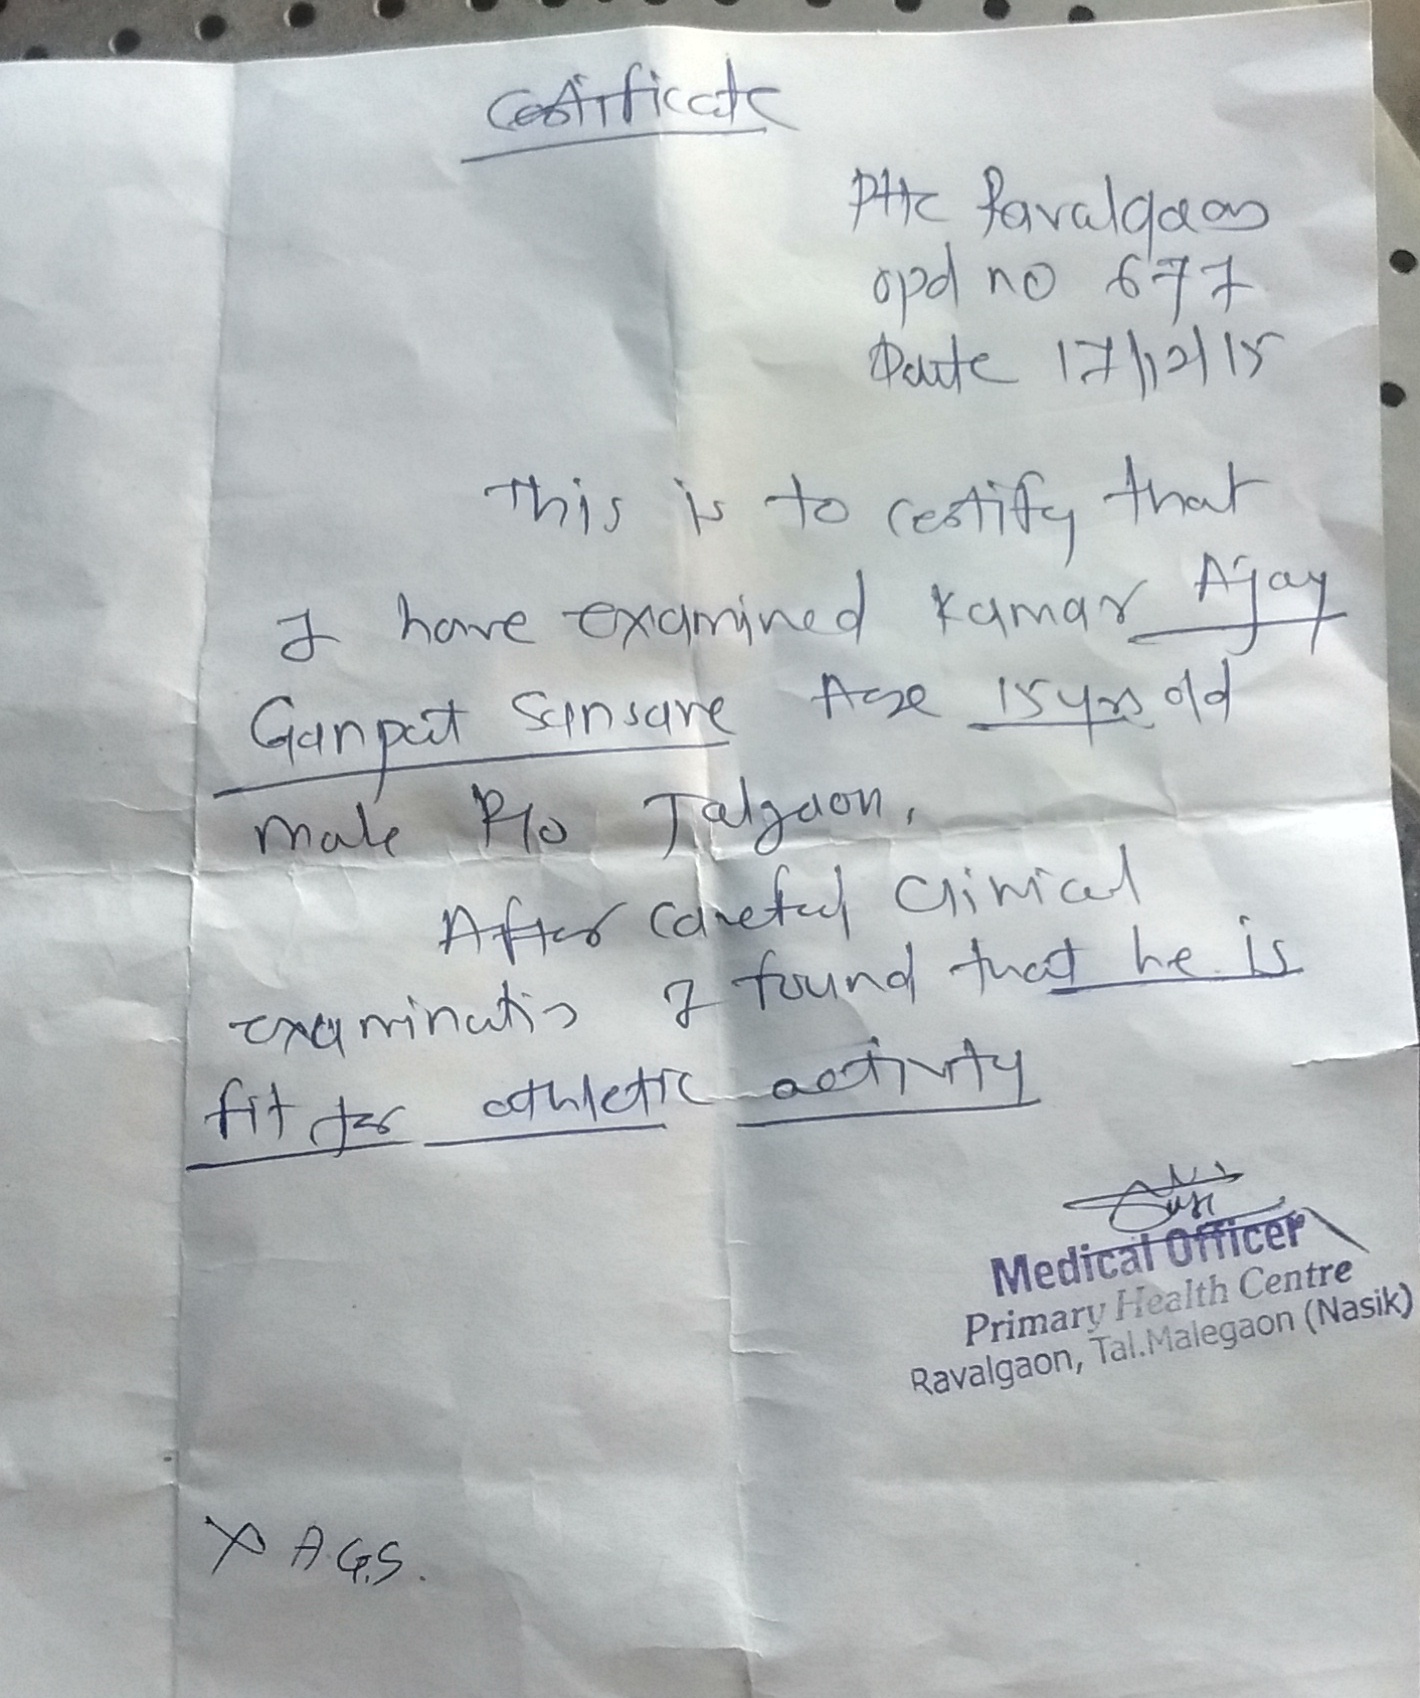 Certificate
PHC Ravalgaon
opd no 677
Date 17/12/15
This is to certify that
I have examined Kumar Ajay
Ganpat Sansare Age 15 yrs old
male R/o Jalgaon,
After careful clinical
examination I found that he is
fit for athletic activity
Medical Officer
Primary Health Centre
Ravalgaon, Tal.Malegaon (Nasik)
X A.G.S.